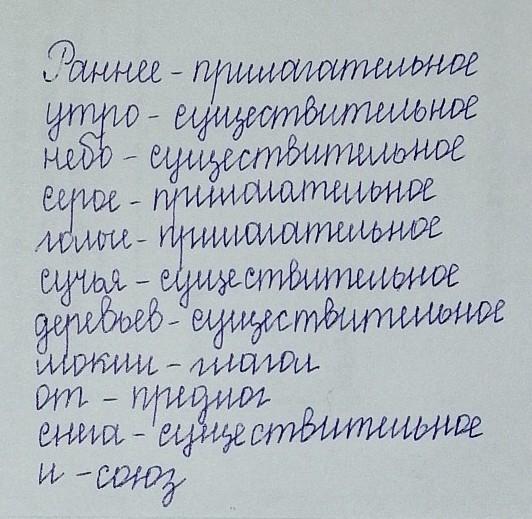 Раннее - прилагательное
утро - существительное
небо - существительное
серое - прилагательное
голые - прилагательное
сучья - существительное
деревьев - существительное
мокли - глагол
от - предлог
снега - существительное
и - союз